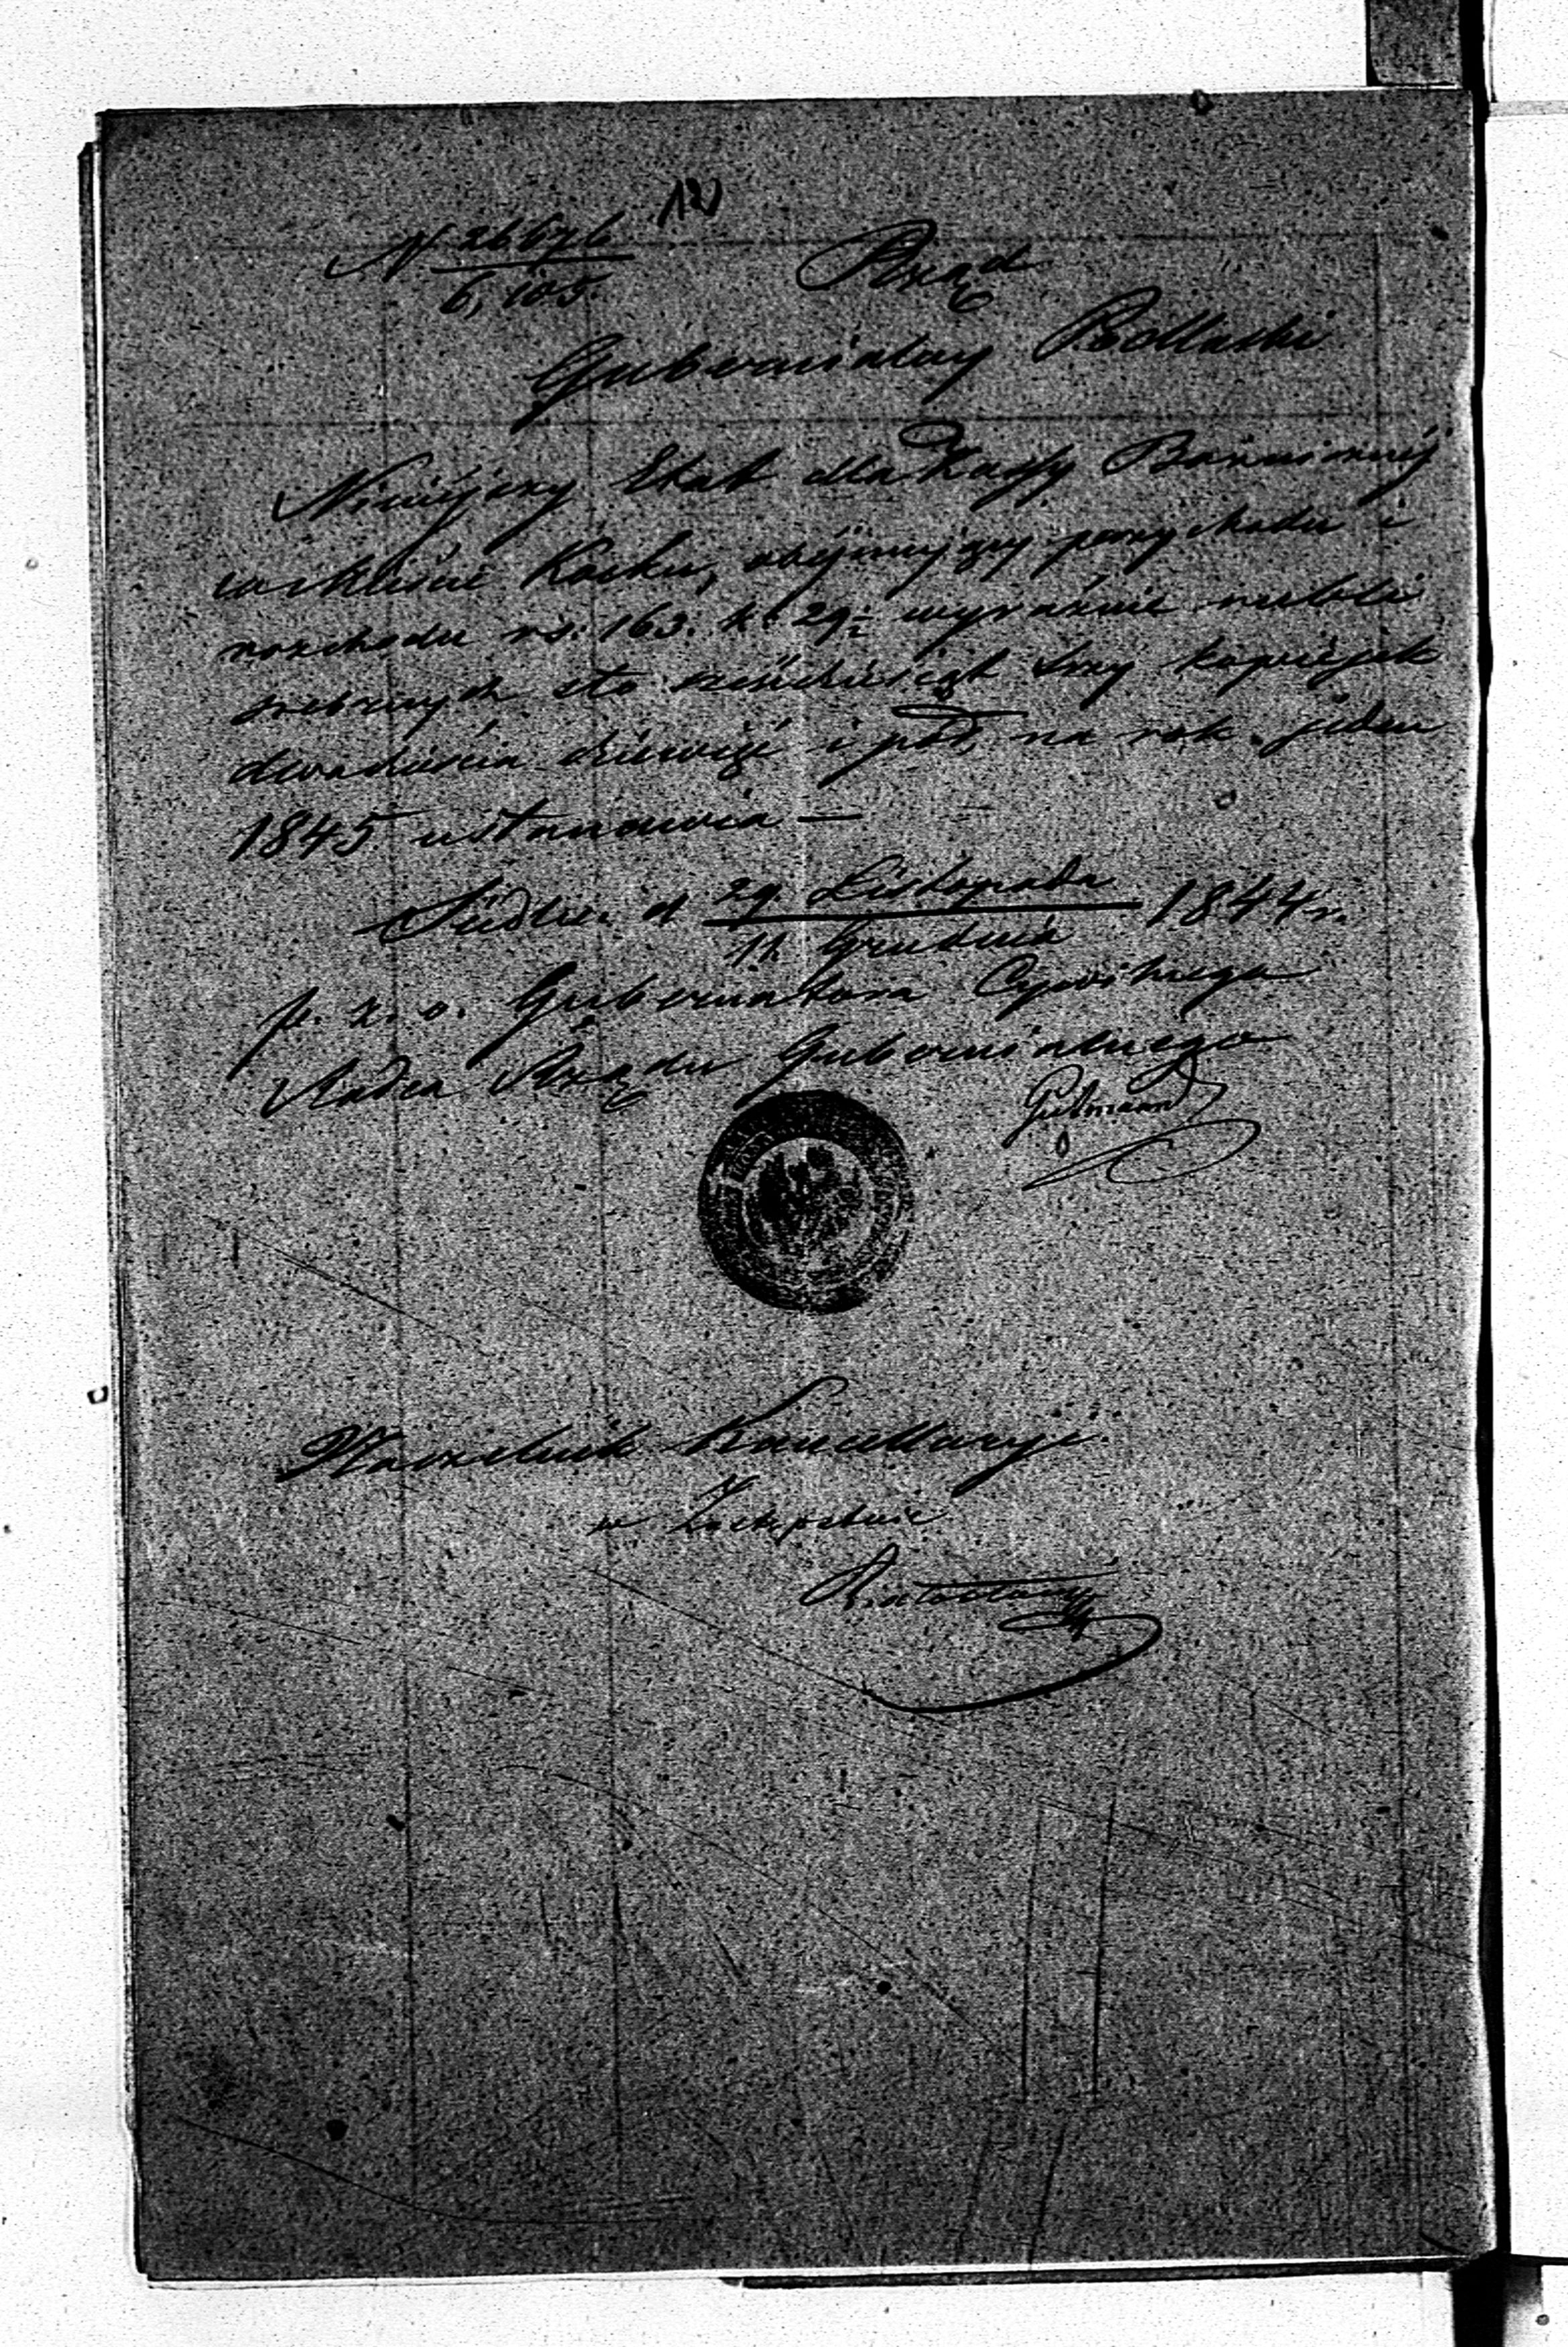 12
N 26676 / 6,105.
Rząd
Gubernialny Podlaski
Niniejszy Etat dla Kassy Bożniczej
w Mieście Kocku, obejmujący przychodu i
rozchodu rs. 163. k. 29½ wyraźnie rubli
srebrnych sto sześćdziesiąt trzy kopiejek
dwadzieścia dziewięć i pół, na rok jeden
1845 ustanawia —
Siedlce d 29. Listopada / 11 Grudnia 1844 r.
p. z. o. Gubernatora Cywilnego
Radca Rządu Gubernialnego
Gutmann
Naczelnik Kancellaryi
w Zastępstwie